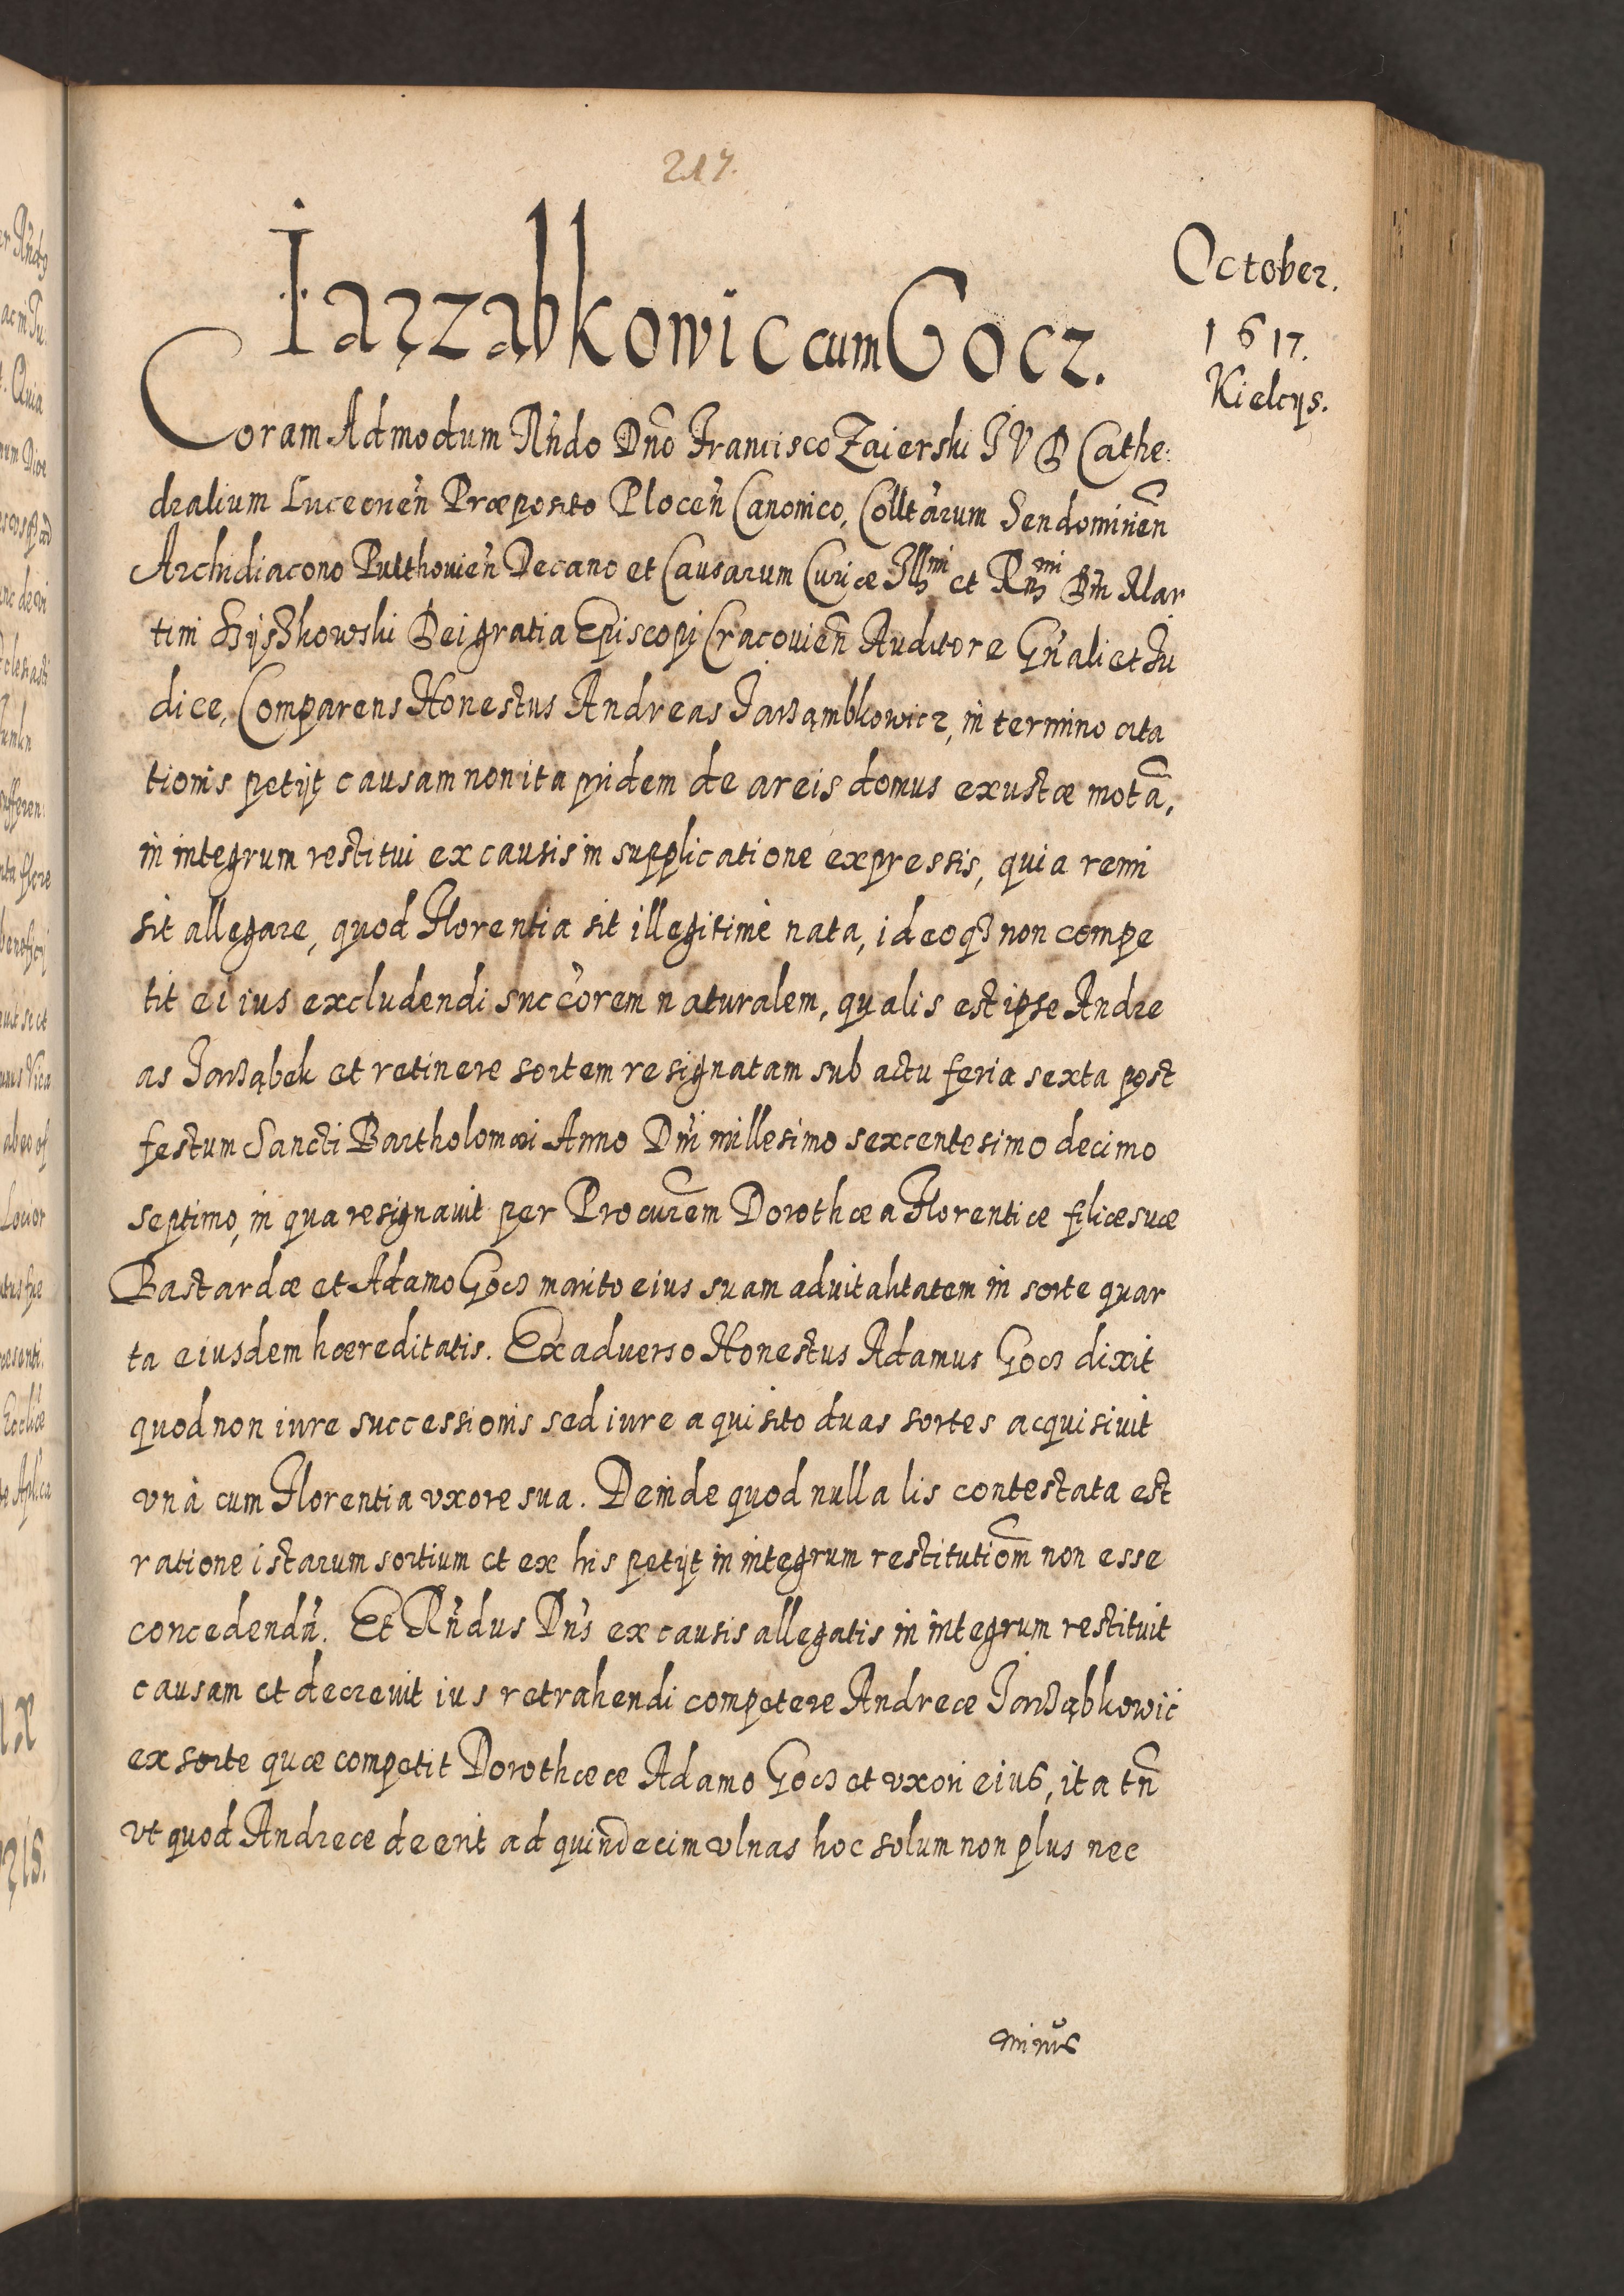 217.
October.
1617.
Kielcijs.
Iarząbkowic cum Gocz.
Coram Admodum Rńdo Dno Francisco Zaierski I V D Cathe:
dralium Luceoneń Præposito Ploceń Canonico, Colltarum Sendomirien
Archidiacono Pulthouień Decano et Causarum Curiæ Illmi et Rmi Dni Mar
tini Szyszkowski Dei gratia Episcopi Cracouien Auditore Gńali et Iu
dice, Comparens Honestus Andreas Iarząmbkowicz, in termino cita
tionis petijt causam non ita pridem de areis domus exustæ mota,
in integrum restitui ex causis in supplicatione expressis, quia remi
sit allegare, quod Florentia sit illegitimè nata, ideoqz non compe
tit ei ius excludendi succorem naturalem, qualis est ipse Andre
as Iarząbek et retinere sortem resignatam sub actu feria sexta post
festum Sancti Bartholomæi Anno Dni millesimo sexcentesimo decimo
septimo, in qua resignauit per Procurem Dorothæa Florentiæ filiæ suæ
Bastardæ et Adamo Gocz marito eius suam aduitalitatem in sorte quar
ta eiusdem hæreditatis. Ex aduerso Honestus Adamus Gocz dixit
quod non iure successionis sed iure aquisito duas sortes acquisiuit
vnà cum Florentia vxore sua. Deinde quod nulla lis contestata est
ratione istarum sortium et ex his petijt in integrum restitutiom non esse
concedendu. Et Rńdus Dńs ex causis allegatis in integrum restituit
causam et decreuit ius retrahendi competere Andreæ Iarząbkowic
ex sorte quæ competit Dorothææ Adamo Gocz et vxori eius, ita tn
vt quod Andreæ deerit ad quindecim vlnas hoc solum non plus nec
minus